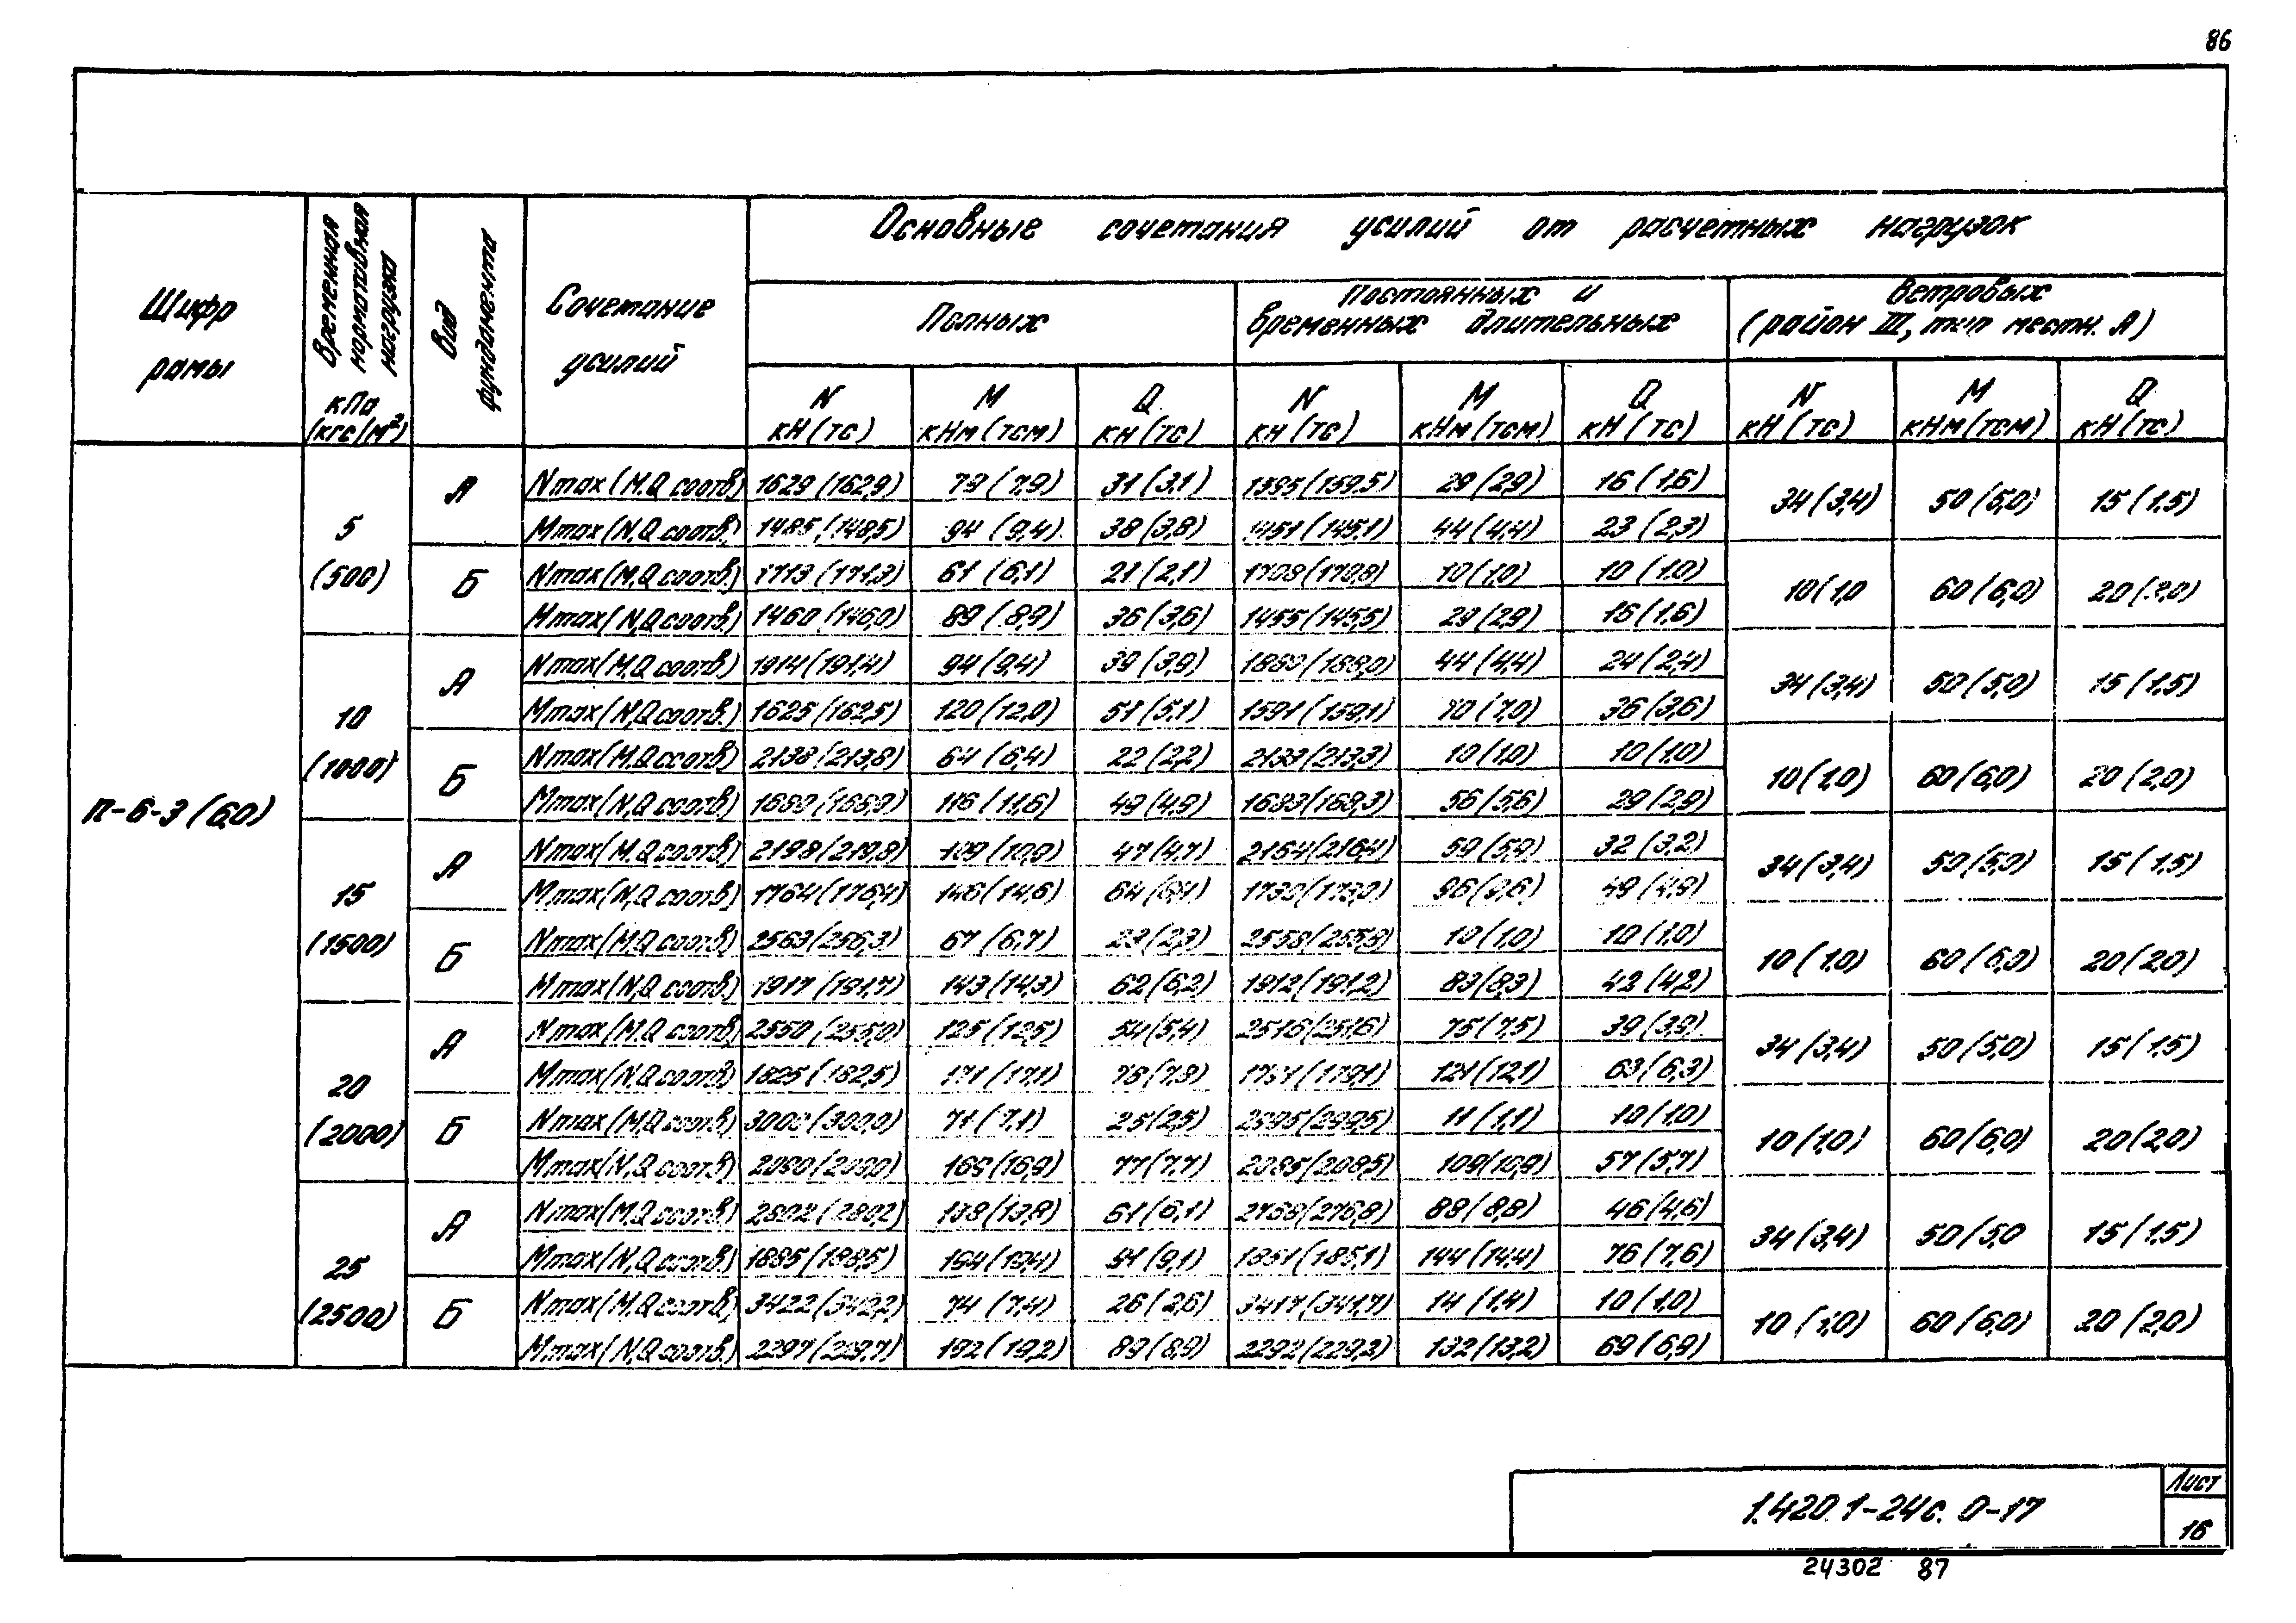 86
Шифр рамы
Временная нормативная нагрузка кПа (кгс/м²)
Вид фундамента
Сочетание усилий
Основные сочетания усилий от расчетных нагрузок
Полных
Постоянных и временных длительных
Ветровых (район III, тип местн. А)
N кН (тс)
М кНм (тсм)
Q кН (тс)
N кН (тс)
М кНм (тсм)
Q кН (тс)
N кН (тс)
М кНм (тсм)
Q кН (тс)
П-6-3 (6,0)
5 (500)
А
Nmax (M,Q соотв) 1629 (162,9) 79 (7,9) 31 (3,1) 1595 (159,5) 29 (2,9) 16 (1,6)
34 (3,4) 50 (5,0) 15 (1,5)
Mmax (N,Q соотв.) 1485 (148,5) 94 (9,4) 38 (3,8) 1451 (145,1) 44 (4,4) 23 (2,3)
Б
Nmax (M,Q соотв.) 1713 (171,3) 61 (6,1) 21 (2,1) 1708 (170,8) 10 (1,0) 10 (1,0)
10 (1,0 60 (6,0) 20 (2,0)
Mmax (N,Q соотв.) 1460 (146,0) 89 (8,9) 36 (3,6) 1455 (145,5) 29 (2,9) 16 (1,6)
10 (1000)
А
Nmax (M,Q соотв.) 1914 (191,4) 94 (9,4) 39 (3,9) 1880 (188,0) 44 (4,4) 24 (2,4)
34 (3,4) 50 (5,0) 15 (1,5)
Mmax (N,Q соотв.) 1625 (162,5) 120 (12,0) 51 (5,1) 1591 (159,1) 70 (7,0) 36 (3,6)
Б
Nmax (M,Q соотв) 2138 (213,8) 64 (6,4) 22 (2,2) 2133 (213,3) 10 (1,0) 10 (1,0)
10 (1,0) 60 (6,0) 20 (2,0)
Mmax (N,Q соотв.) 116 (11,6) 49 (4,9) 1683 (168,3) 56 (5,6) 29 (2,9)
15 (1500)
А
Nmax (M,Q соотв) 2198 (219,8) 109 (10,9) 47 (4,7) 2164 (216,4) 59 (5,9) 32 (3,2)
34 (3,4) 50 (5,0) 15 (1,5)
Mmax (N,Q соотв) 1764 (176,4) 146 (14,6) 64 (6,4) 1730 (173,0) 96 (9,6) 49 (4,9)
Б
Nmax (M,Q соотв.) 2563 (256,3) 67 (6,7) 23 (2,3) 2558 (255,8) 10 (1,0) 10 (1,0)
10 (1,0) 60 (6,0) 20 (2,0)
Mmax (N,Q соотв.) 1917 (191,7) 143 (14,3) 62 (6,2) 1912 (191,2) 83 (8,3) 42 (4,2)
20 (2000)
А
Nmax (M,Q соотв) 2550 (255,0) 125 (12,5) 54 (5,4) 2516 (251,6) 75 (7,5) 39 (3,9)
34 (3,4) 50 (5,0) 15 (1,5)
Mmax (N,Q соотв) 1825 (182,5) 171 (17,1) 78 (7,8) 1791 (179,1) 121 (12,1) 63 (6,3)
Б
Nmax (M,Q соотв) 3000 (300,0) 71 (7,1) 25 (2,5) 2995 (299,5) 11 (1,1) 10 (1,0)
10 (1,0) 60 (6,0) 20 (2,0)
Mmax (N,Q соотв) 2090 (209,0) 169 (16,9) 77 (7,7) 2085 (208,5) 109 (10,9) 57 (5,7)
25 (2500)
А
Nmax (M,Q соотв) 2802 (280,2) 138 (13,8) 61 (6,1) 2768 (276,8) 88 (8,8) 46 (4,6)
34 (3,4) 50 (5,0 15 (1,5)
Mmax (N,Q соотв.) 1885 (188,5) 194 (19,4) 91 (9,1) 1851 (185,1) 144 (14,4) 76 (7,6)
Б
Nmax (M,Q соотв) 3422 (342,2) 74 (7,4) 26 (2,6) 3417 (341,7) 14 (1,4) 10 (1,0)
10 (1,0) 60 (6,0) 20 (2,0)
Mmax (N,Q соотв.) 2297 (229,7) 192 (19,2) 89 (8,9) 2292 (229,2) 132 (13,2) 69 (6,9)
1.420.1-24с. 0-17
Лист
16
24302 87